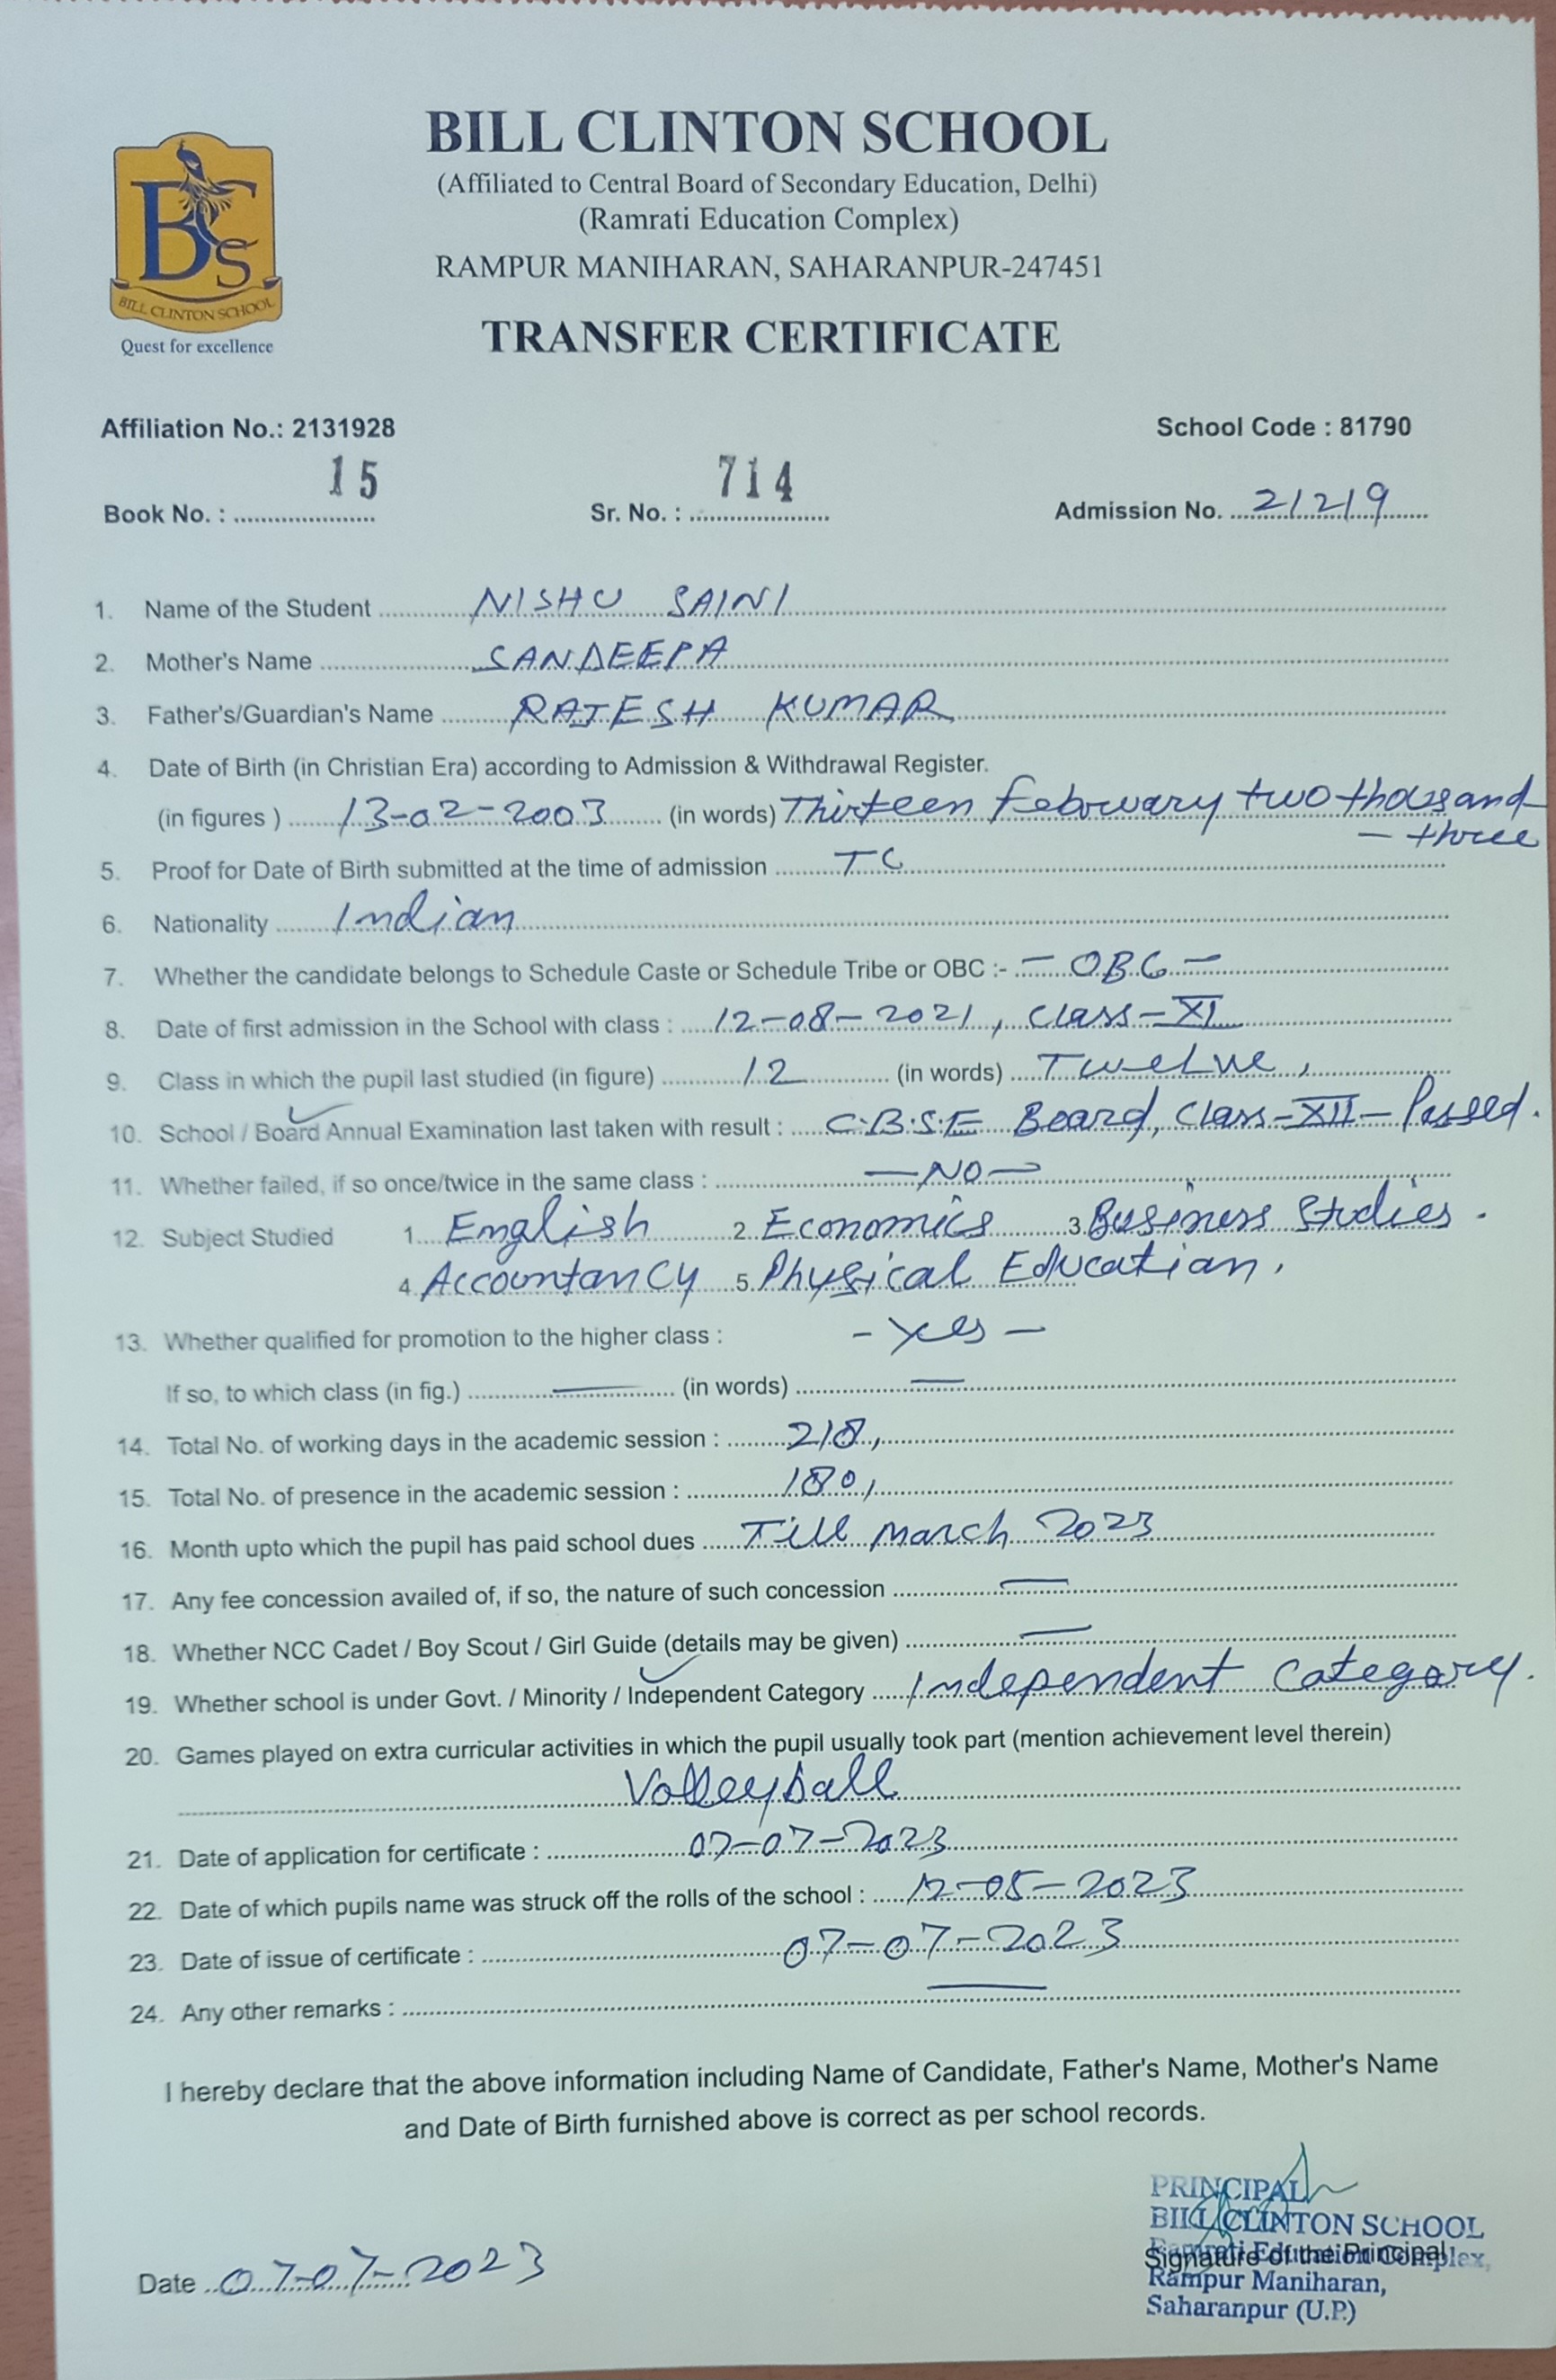 BILL CLINTON SCHOOL
(Affiliated to Central Board of Secondary Education, Delhi)
(Ramrati Education Complex)
RAMPUR MANIHARAN, SAHARANPUR-247451
BCS
BILL CLINTON SCHOOL
Quest for excellence
TRANSFER CERTIFICATE
Affiliation No.: 2131928 School Code : 81790
Book No. : 15 Sr. No. : 714 Admission No. 21219
1. Name of the Student NISHU SAINI
2. Mother's Name SANDEEPA
3. Father's/Guardian's Name RAJESH KUMAR
4. Date of Birth (in Christian Era) according to Admission & Withdrawal Register.
(in figures ) 13-02-2003 (in words) Thirteen February two thousand
- three
5. Proof for Date of Birth submitted at the time of admission TC
6. Nationality Indian
7. Whether the candidate belongs to Schedule Caste or Schedule Tribe or OBC :- - OBC -
8. Date of first admission in the School with class : 12-08-2021, Class-XI
9. Class in which the pupil last studied (in figure) 12 (in words) Twelve,
10. School / Board Annual Examination last taken with result : C.B.S.E Board, Class-XII- Passed.
11. Whether failed, if so once/twice in the same class : -NO-
12. Subject Studied 1. English 2. Economics 3. Business Studies.
4. Accountancy 5. Physical Education.
13. Whether qualified for promotion to the higher class : - Yes -
If so, to which class (in fig.) — (in words) —
14. Total No. of working days in the academic session : 218,
15. Total No. of presence in the academic session : 180,
16. Month upto which the pupil has paid school dues Till March 2023
17. Any fee concession availed of, if so, the nature of such concession —
18. Whether NCC Cadet / Boy Scout / Girl Guide (details may be given) —
19. Whether school is under Govt. / Minority / Independent Category Independent Category.
20. Games played on extra curricular activities in which the pupil usually took part (mention achievement level therein)
Volleyball
21. Date of application for certificate : 07-07-2023
22. Date of which pupils name was struck off the rolls of the school : 12-05-2023
23. Date of issue of certificate : 07-07-2023
24. Any other remarks : —
I hereby declare that the above information including Name of Candidate, Father's Name, Mother's Name
and Date of Birth furnished above is correct as per school records.
PRINCIPAL
BILL CLINTON SCHOOL
Ramrati Education Complex,
Signature of the Principal
Rampur Maniharan,
Saharanpur (U.P.)
Date 07-07-2023